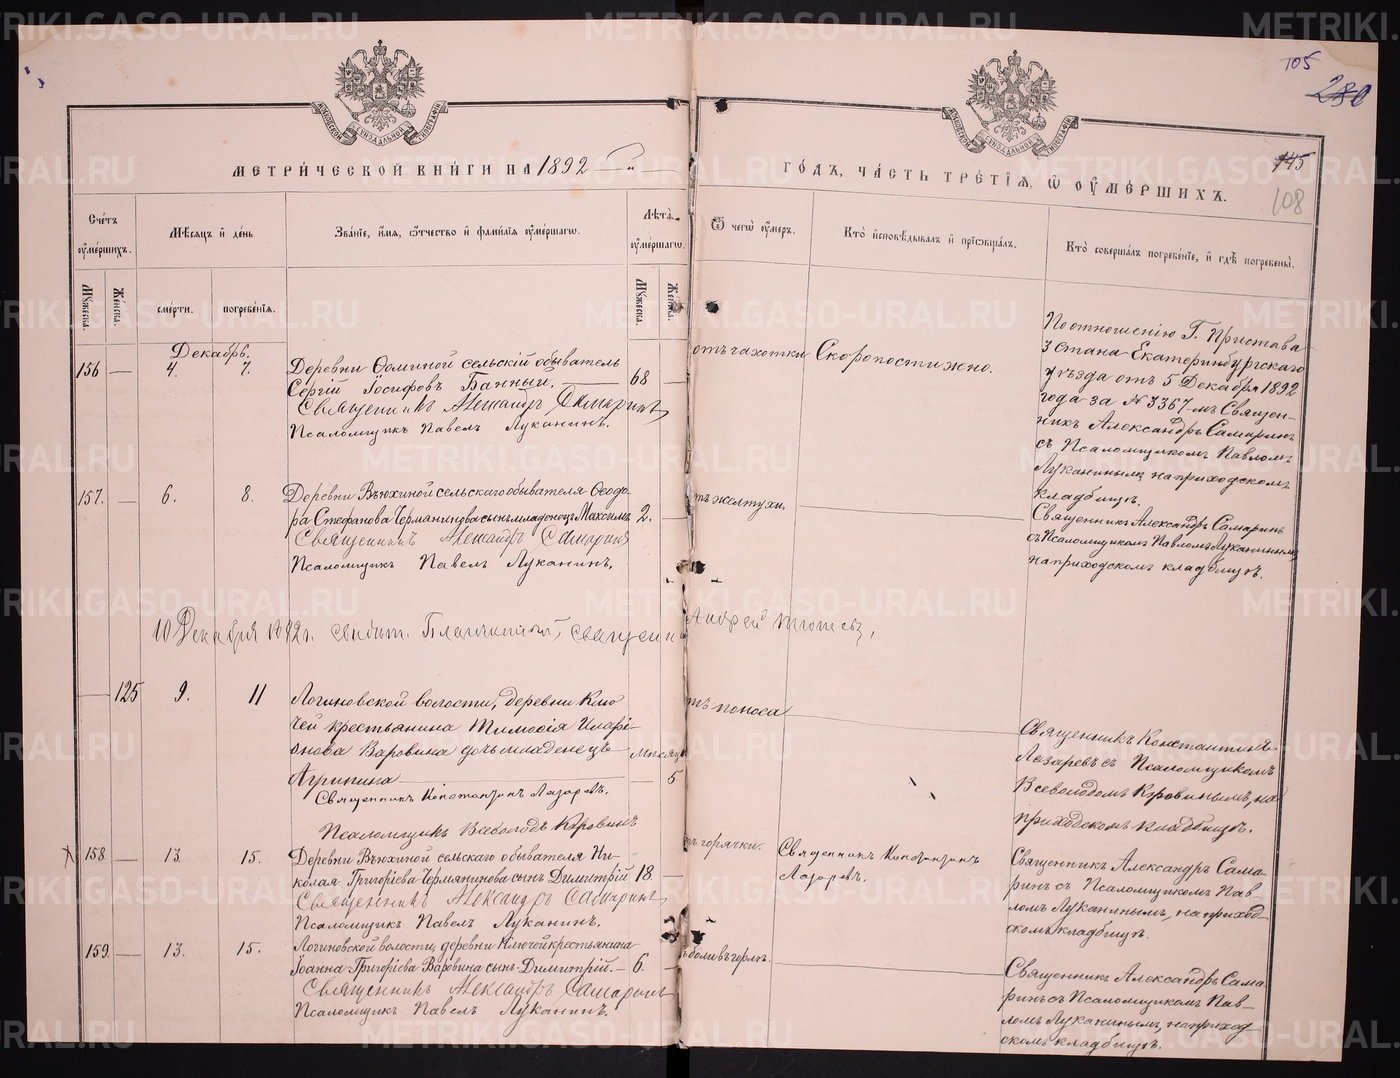 105
280
145
108
МЕТРИ́ЧЕСКОЙ КНИ́ГИ НА 1892
ГО́ДЪ, ЧА́СТЬ ТРЕ́ТІЯ, Ѡ҆ ОУ҆МЕ́РШИХЪ.
Сче́тъ оу҆ме́ршихъ.
Мѣ́сяцъ и҆ де́нь
Зва́ніе, и҆́мя, ѻ҆́тчество и҆ фами́лія оу҆ме́ршагѡ.
Лѣ́та оу҆ме́ршагѡ.
Ѿ чегѡ̀ оу҆́меръ.
Кто̀ и҆сповѣ́дывалъ и҆ прїѡбща́лъ.
Кто̀ соверша́лъ погребе́ніе, и҆ гдѣ̀ погребены̀.
Мꙋ́жеска.
Же́нска.
сме́рти.
погребе́нїѧ.
Мꙋ́жеска.
Же́нска.
Декабрь.
156 — 4. 7.
Деревни Фоминой сельскій обыватель
Сергій Іосифовъ Банный.
68 —
Священникъ Александръ Самаринъ
Псаломщикъ Павелъ Луканинъ.
отъ чахотки
Скоропостижно.
По отношенію Г. Пристава
3 стана Екатеринбургскаго
уѣзда отъ 5 Декабря 1892
года за № 3367-мъ Священ-
никъ Александръ Самаринъ
съ Псаломщикомъ Павломъ
Луканинымъ на приходскомъ
кладбищѣ.
157. — 6. 8.
Деревни Вьюхиной сельскаго обывателя Ѳеодо-
ра Стефанова Чермянинова сынъ младенецъ Максимъ
2. —
Священникъ Александръ Самаринъ
Псаломщикъ Павелъ Луканинъ.
тъ желтухи.
Священникъ Александръ Самаринъ
съ Псаломщикомъ Павломъ Луканинымъ,
на приходскомъ кладбищѣ.
10 Декабря 1892 г. свидѣт. Благочинный, священ Андрей
— 125 9. 11
Логиновской волости, деревни Клю
чей крестьянина Тимоѳія Иларі-
онова Варовина дочь младенецъ
Агрипина
мѣсяц
— 5
Священникъ Константинъ Лазаревъ.
Псаломщикъ Всеволодъ Коровинъ
тъ поноса
Священникъ Константинъ
Лазаревъ съ Псаломщикомъ
Всеволодомъ Коровинымъ, на
приходскомъ кладбищѣ.
158 — 13. 15.
Деревни Вьюхиной сельскаго обывателя Ни-
колая Григоріева Чермянинова сынъ Димитрій
18 —
Священникъ Александръ Самаринъ
Псаломщикъ Павелъ Луканинъ.
ъ горячки.
Священникъ Константинъ
Лазаревъ.
Священникъ Александръ Сама
ринъ съ Псаломщикомъ Пав-
ломъ Луканинымъ, на приход-
скомъ кладбищѣ.
159. — 13. 15.
Логиновской волости, деревни Ключей крестьянина
Іоанна Григоріева Варовина сынъ Димитрій.
6. —
Священникъ Александръ Самаринъ
Псаломщикъ Павелъ Луканинъ.
ъ боли въ горлѣ.
Священникъ Александръ Сама
ринъ съ Псаломщикомъ Пав-
ломъ Луканинымъ, на приход
скомъ кладбищѣ.
METRIKI.GASO-URAL.RU